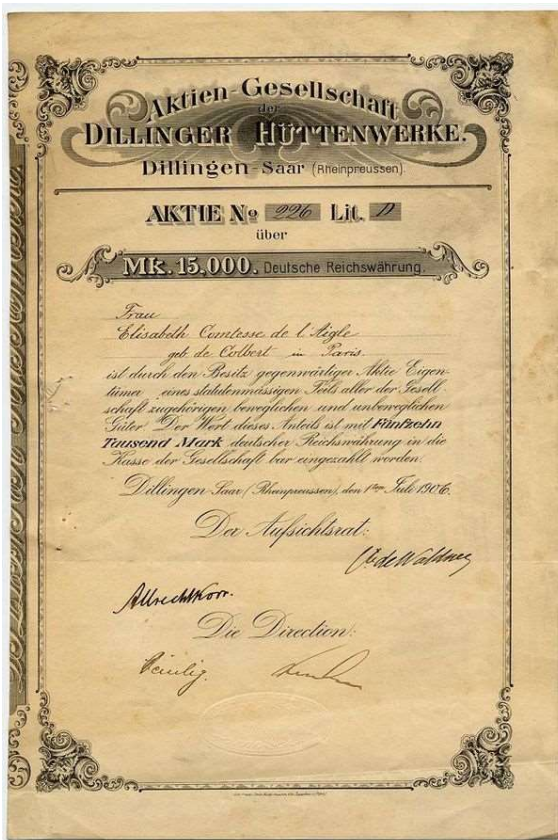 Aktien-Gesellschaft
der
DILLINGER HÜTTENWERKE.
Dillingen-Saar (Rheinpreussen).
AKTIE No 226 Lit. D
über
Mk. 15,000. Deutsche Reichswährung.
Frau
Elisabeth Comtesse de l'Aigle
geb de Colbert in Paris
ist durch den Besitz gegenwärtiger Aktie Eigen-
tümer eines statutenmässigen Teils aller der Gesell-
schaft zugehörigen beweglichen und unbeweglichen
Güter. Der Wert dieses Anteils ist mit Fünfzehn
Tausend Mark deutscher Reichswährung in die
Kasse der Gesellschaft bar eingezahlt worden.
Dillingen-Saar (Rheinpreussen), den 1ten Juli 1906.
Der Aufsichtsrat:
de Waldner
Albrecht
Die Direction: